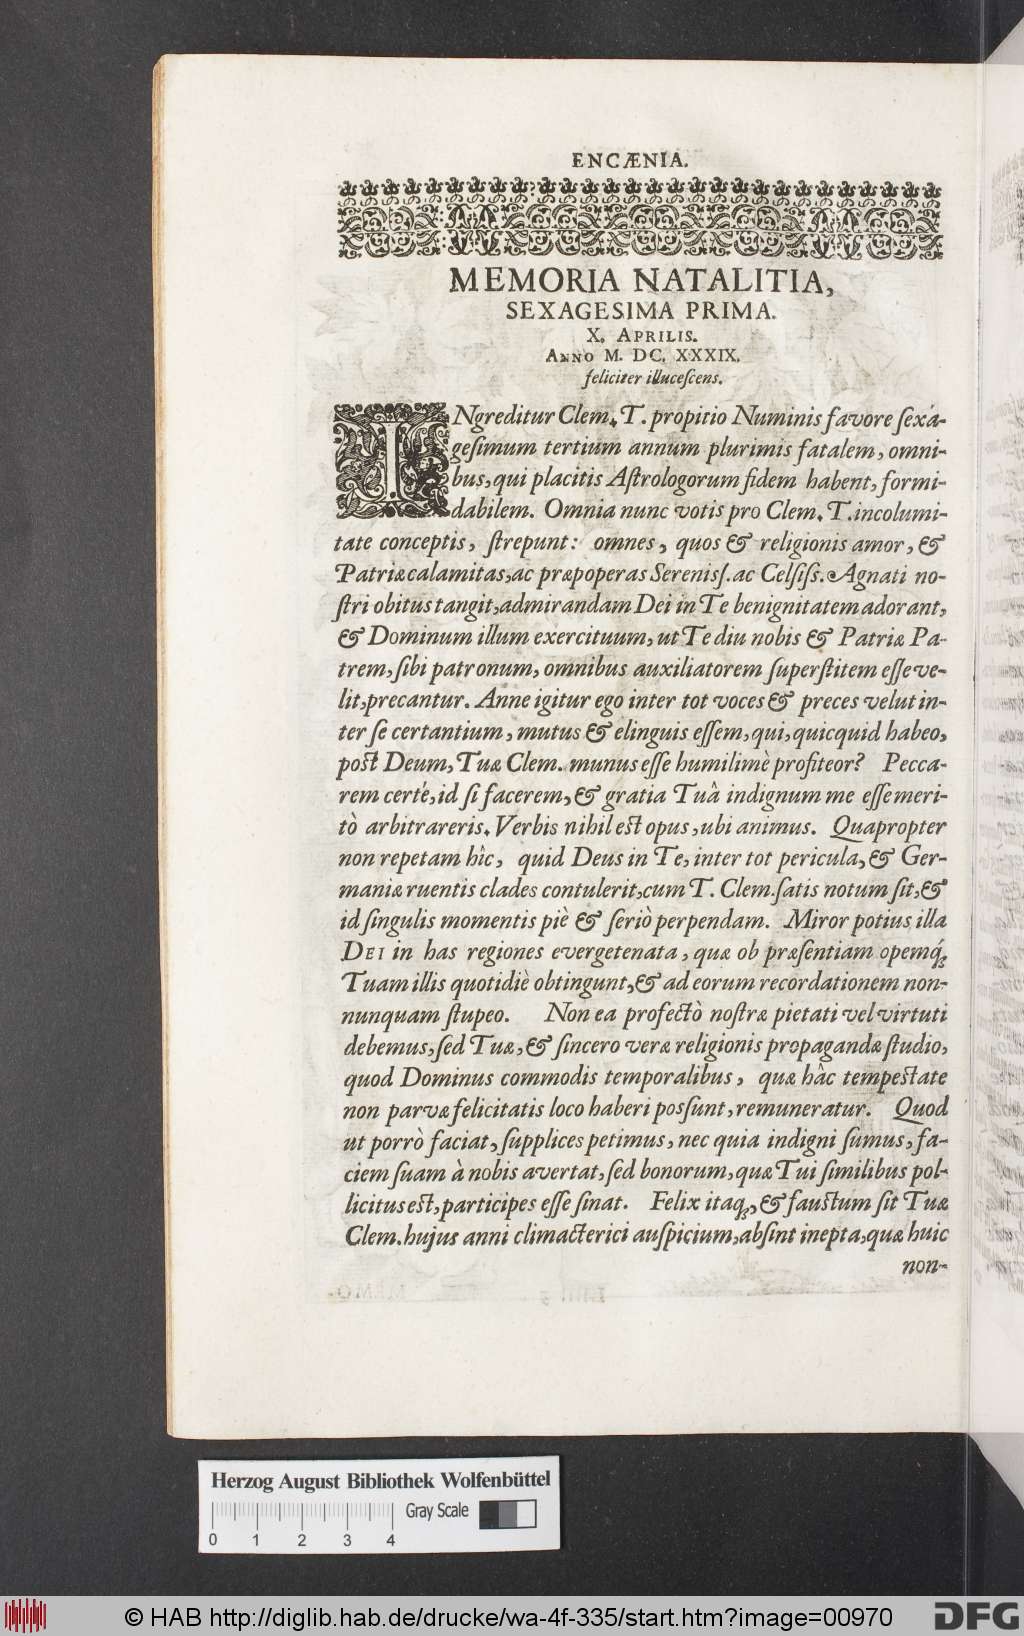 ENCÆNIA.
MEMORIA NATALITIA,
SEXAGESIMA PRIMA.
X. APRILIS.
ANNO M. DC. XXXIX.
feliciter illucescens.
INgreditur Clem. T. propitio Numinis favore sexa-
gesimum tertium annum plurimis fatalem, omni-
bus, qui placitis Astrologorum fidem habent, formi-
dabilem. Omnia nunc votis pro Clem. T. incolumi-
tate conceptis, strepunt: omnes, quos & religionis amor, &
Patriæ calamitas, ac præpoperas Sereniss. ac Celsiss. Agnati no-
stri obitus tangit, admirandam Dei in Te benignitatem adorant,
& Dominum illum exercituum, ut Te diu nobis & Patriæ Pa-
trem, sibi patronum, omnibus auxiliatorem superstitem esse ve-
lit, precantur. Anne igitur ego inter tot voces & preces velut in-
ter se certantium, mutus & elinguis essem, qui, quicquid habeo,
post Deum, Tuæ Clem. munus esse humilimè profiteor? Pecca-
rem certè, id si facerem, & gratia Tuâ indignum me esse meri-
tò arbitrareris. Verbis nihil est opus, ubi animus. Quapropter
non repetam hîc, quid Deus in Te, inter tot pericula, & Ger-
maniæ ruentis clades contulerit, cum T. Clem. satis notum sit, &
id singulis momentis piè & seriò perpendam. Miror potius illa
DEI in has regiones evergetenata, quæ ob præsentiam opemq́;
Tuam illis quotidiè obtingunt, & ad eorum recordationem non-
nunquam stupeo. Non ea profectò nostræ pietati vel virtuti
debemus, sed Tuæ, & sincero veræ religionis propagandæ studio,
quod Dominus commodis temporalibus, quæ hâc tempestate
non parvæ felicitatis loco haberi possunt, remuneratur. Quod
ut porrò faciat, supplices petimus, nec quia indigni sumus, fa-
ciem suam à nobis avertat, sed bonorum, quæ Tui similibus pol-
licitus est, participes esse sinat. Felix itaq;, & faustum sit Tuæ
Clem. hujus anni climacterici auspicium, absint inepta, quæ huic
non-
Herzog August Bibliothek Wolfenbüttel
Gray Scale
0 1 2 3 4
© HAB http://diglib.hab.de/drucke/wa-4f-335/start.htm?image=00970
DFG